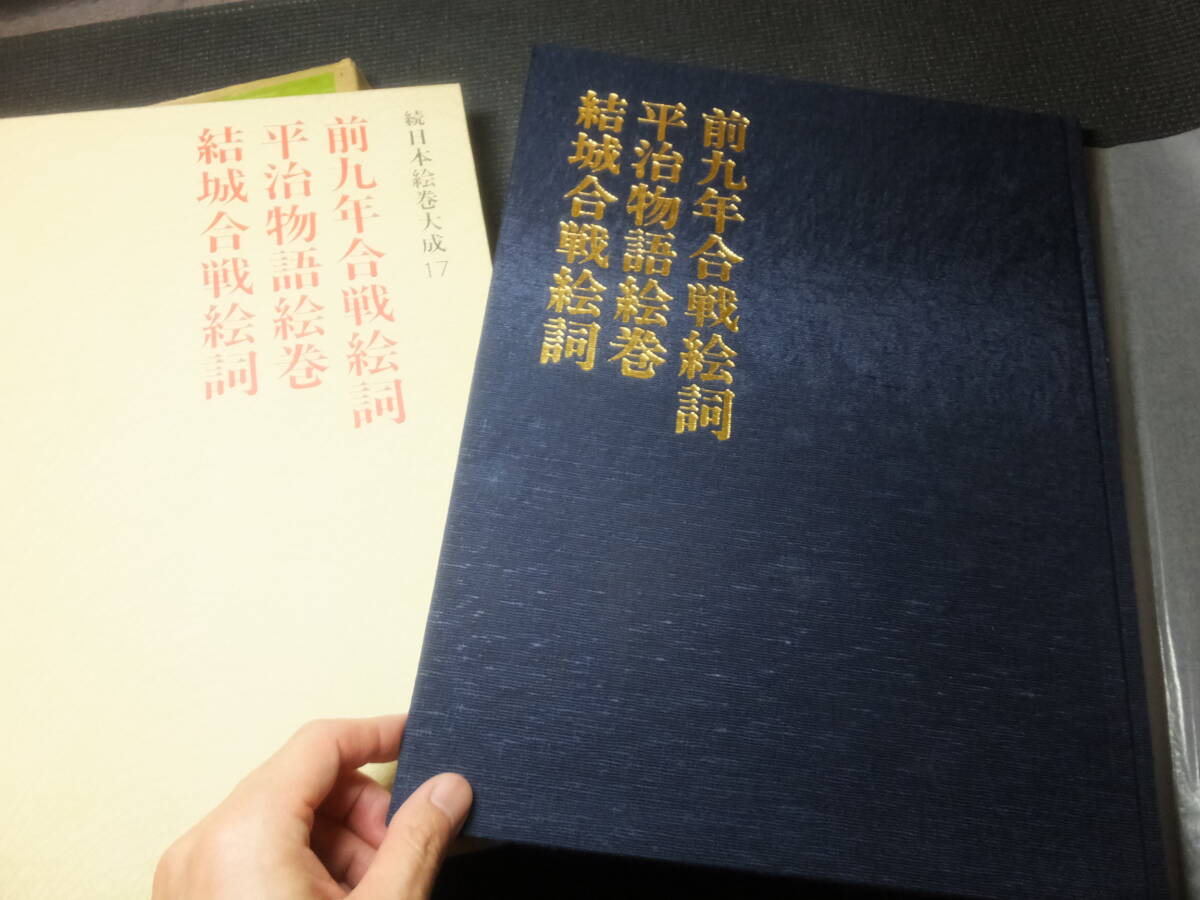 続日本絵巻大成 17
前九年合戦絵詞
平治物語絵巻
結城合戦絵詞
前九年合戦絵詞
平治物語絵巻
結城合戦絵詞